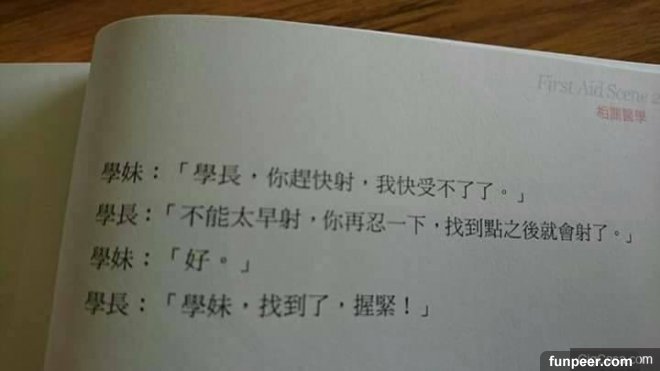 First Aid Scene 2
相關醫學
學妹：「學長，你趕快射，我快受不了了。」
學長：「不能太早射，你再忍一下，找到點之後就會射了。」
學妹：「好。」
學長：「學妹，找到了，握緊！」
funpeer.com